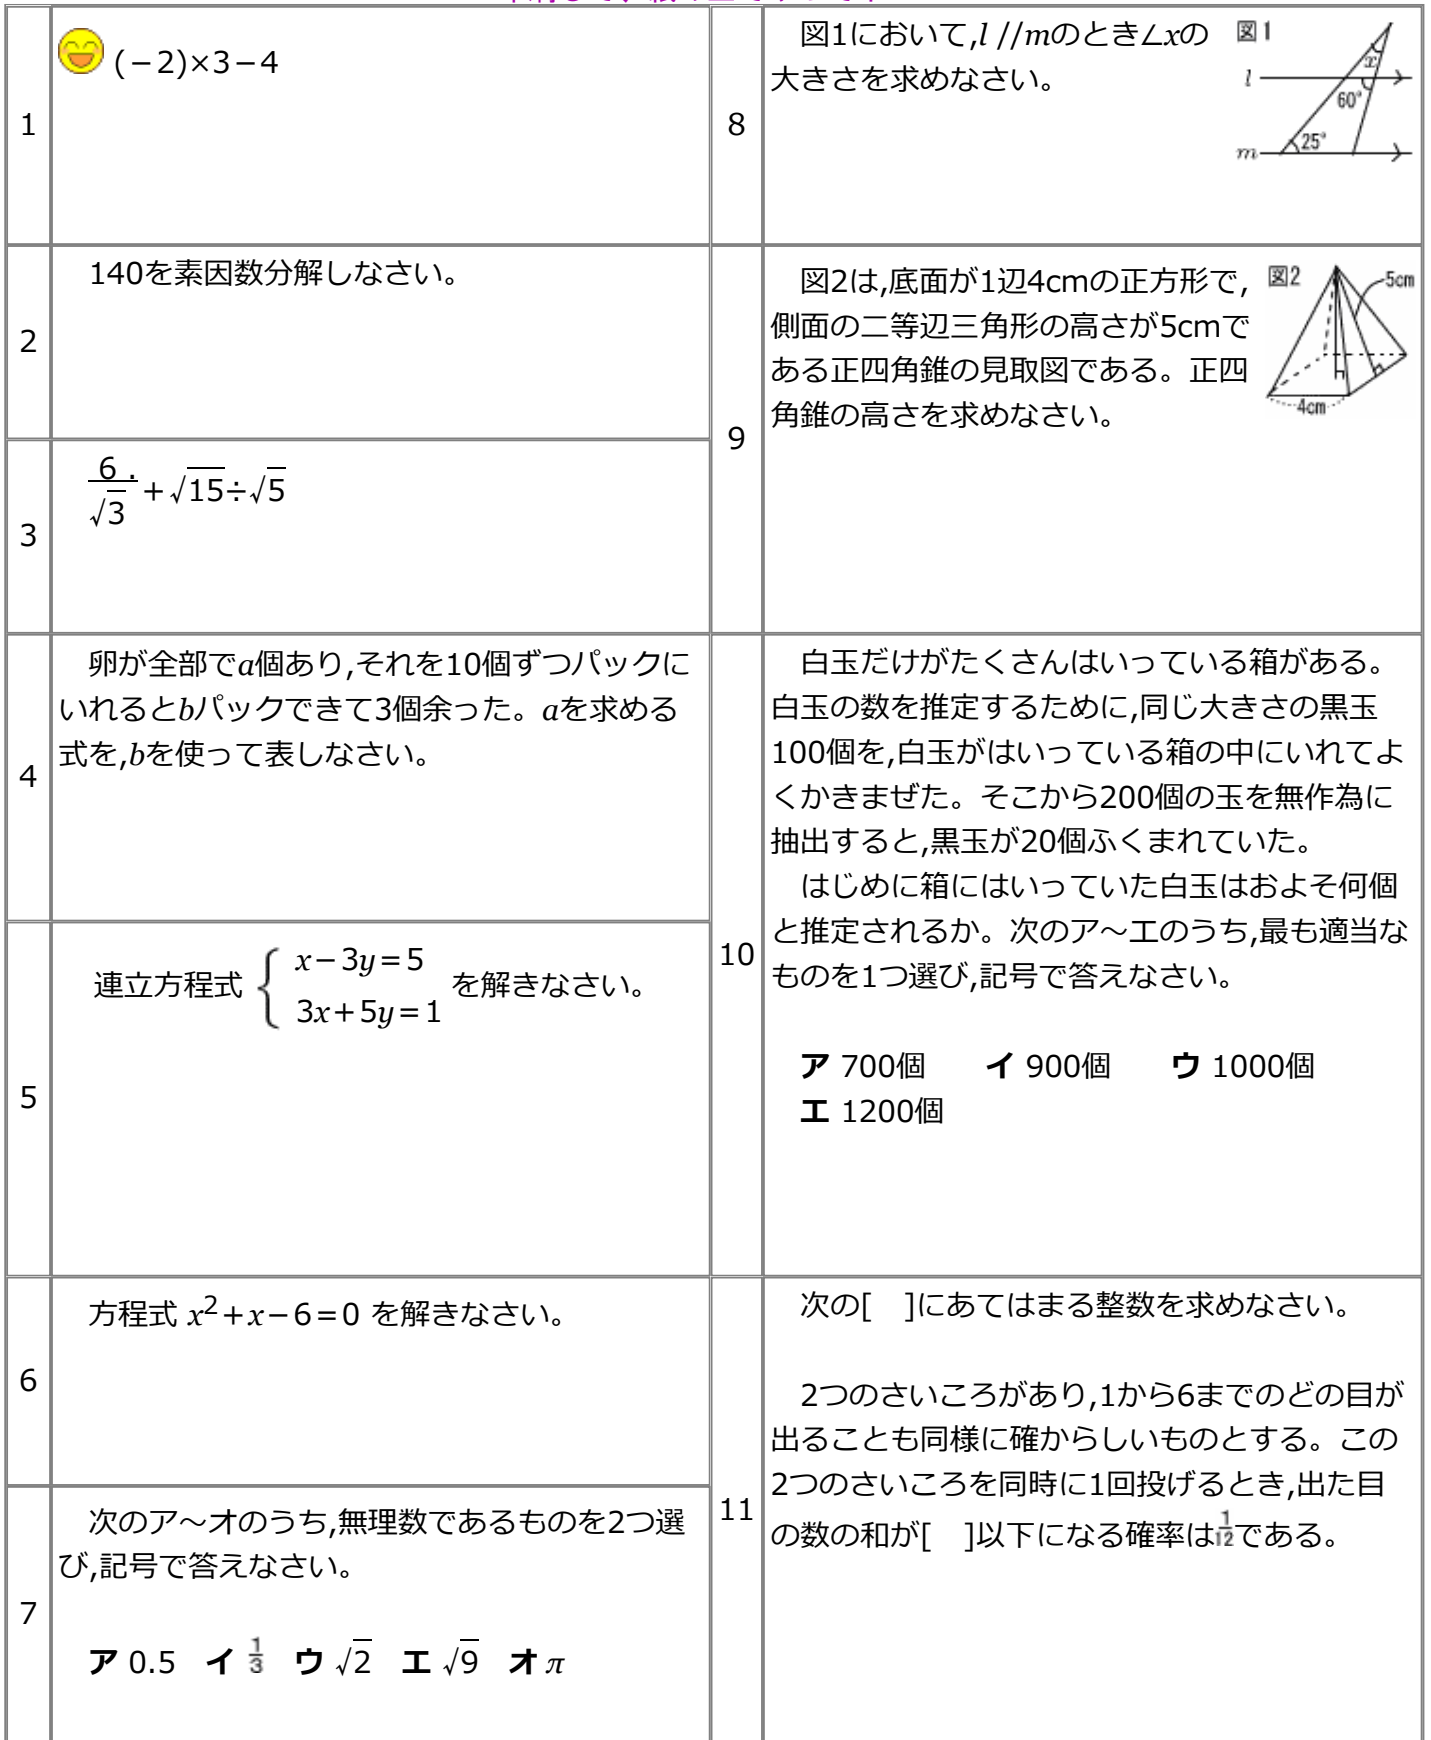 1
(−2)×3−4
2
140を素因数分解しなさい。
3
6 .
√3
+√15÷√5
4
卵が全部でa個あり,それを10個ずつパックに
いれるとbパックできて3個余った。aを求める
式を,bを使って表しなさい。
5
連立方程式 { x−3y=5
3x+5y=1 を解きなさい。
6
方程式 x²+x−6=0 を解きなさい。
7
次のア～オのうち,無理数であるものを2つ選
び,記号で答えなさい。
ア 0.5 イ 1/3 ウ √2 エ √9 オ π
8
図1において,l //mのとき∠xの
大きさを求めなさい。
図1
x
l
60°
m
25°
9
図2は,底面が1辺4cmの正方形で,
側面の二等辺三角形の高さが5cmで
ある正四角錐の見取図である。正四
角錐の高さを求めなさい。
図2
5cm
4cm
10
白玉だけがたくさんはいっている箱がある。
白玉の数を推定するために,同じ大きさの黒玉
100個を,白玉がはいっている箱の中にいれてよ
くかきまぜた。そこから200個の玉を無作為に
抽出すると,黒玉が20個ふくまれていた。
はじめに箱にはいっていた白玉はおよそ何個
と推定されるか。次のア～エのうち,最も適当な
ものを1つ選び,記号で答えなさい。
ア 700個 イ 900個 ウ 1000個
エ 1200個
11
次の[　]にあてはまる整数を求めなさい。
2つのさいころがあり,1から6までのどの目が
出ることも同様に確からしいものとする。この
2つのさいころを同時に1回投げるとき,出た目
の数の和が[　]以下になる確率は1/12である。